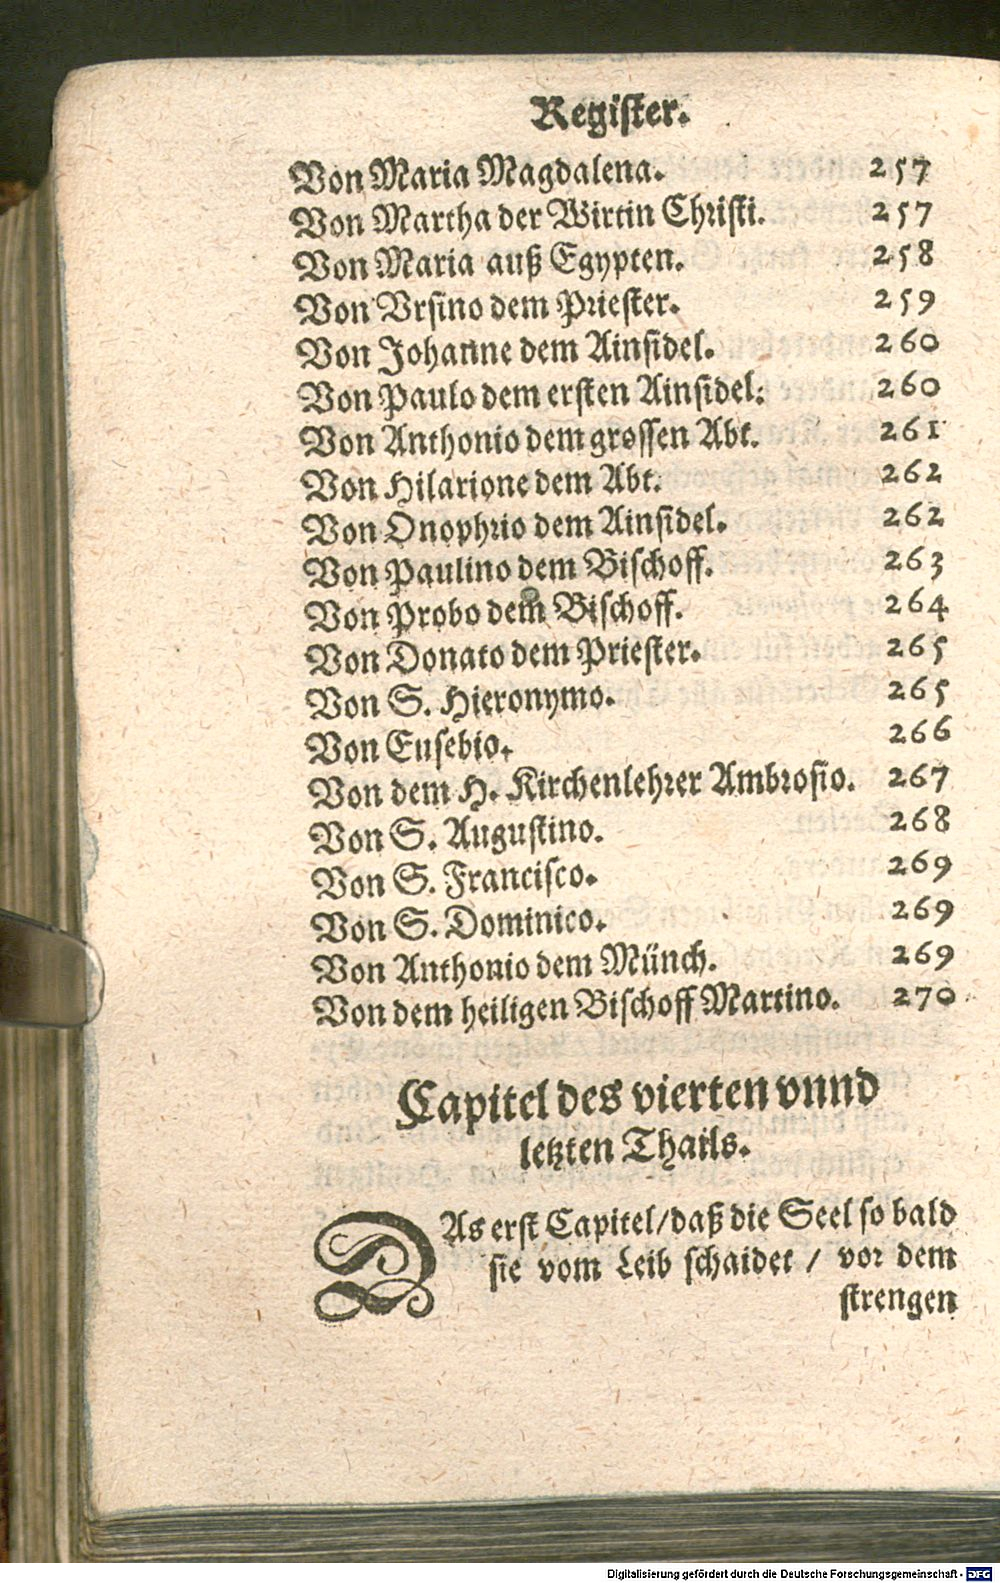 Register.
Von Maria Magdalena. 257
Von Martha der Wirtin Christi. 257
Von Maria auß Egypten. 258
Von Vrsino dem Priester. 259
Von Johanne dem Ainsidel. 260
Von Paulo dem ersten Ainsidel. 260
Von Anthonio dem grossen Abt. 261
Von Hilarione dem Abt. 262
Von Onophrio dem Ainsidel. 262
Von Paulino dem Bischoff. 263
Von Probo dem Bischoff. 264
Von Donato dem Priester. 265
Von S. Hieronymo. 265
Von Eusebio. 266
Von dem H. Kirchenlehrer Ambrosio. 267
Von S. Augustino. 268
Von S. Francisco. 269
Von S. Dominico. 269
Von Anthonio dem Münch. 269
Von dem heiligen Bischoff Martino. 270
Capitel des vierten vnnd
letzten Thails.
DAs erst Capitel/daß die Seel so bald
sie vom Leib schaidet / vor dem
strengen
Digitalisierung gefördert durch die Deutsche Forschungsgemeinschaft - DFG